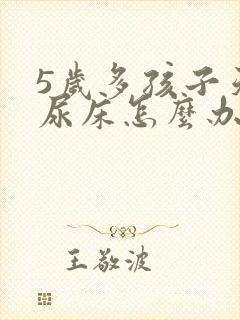 5歲多孩子
尿床怎麼办
王敬波